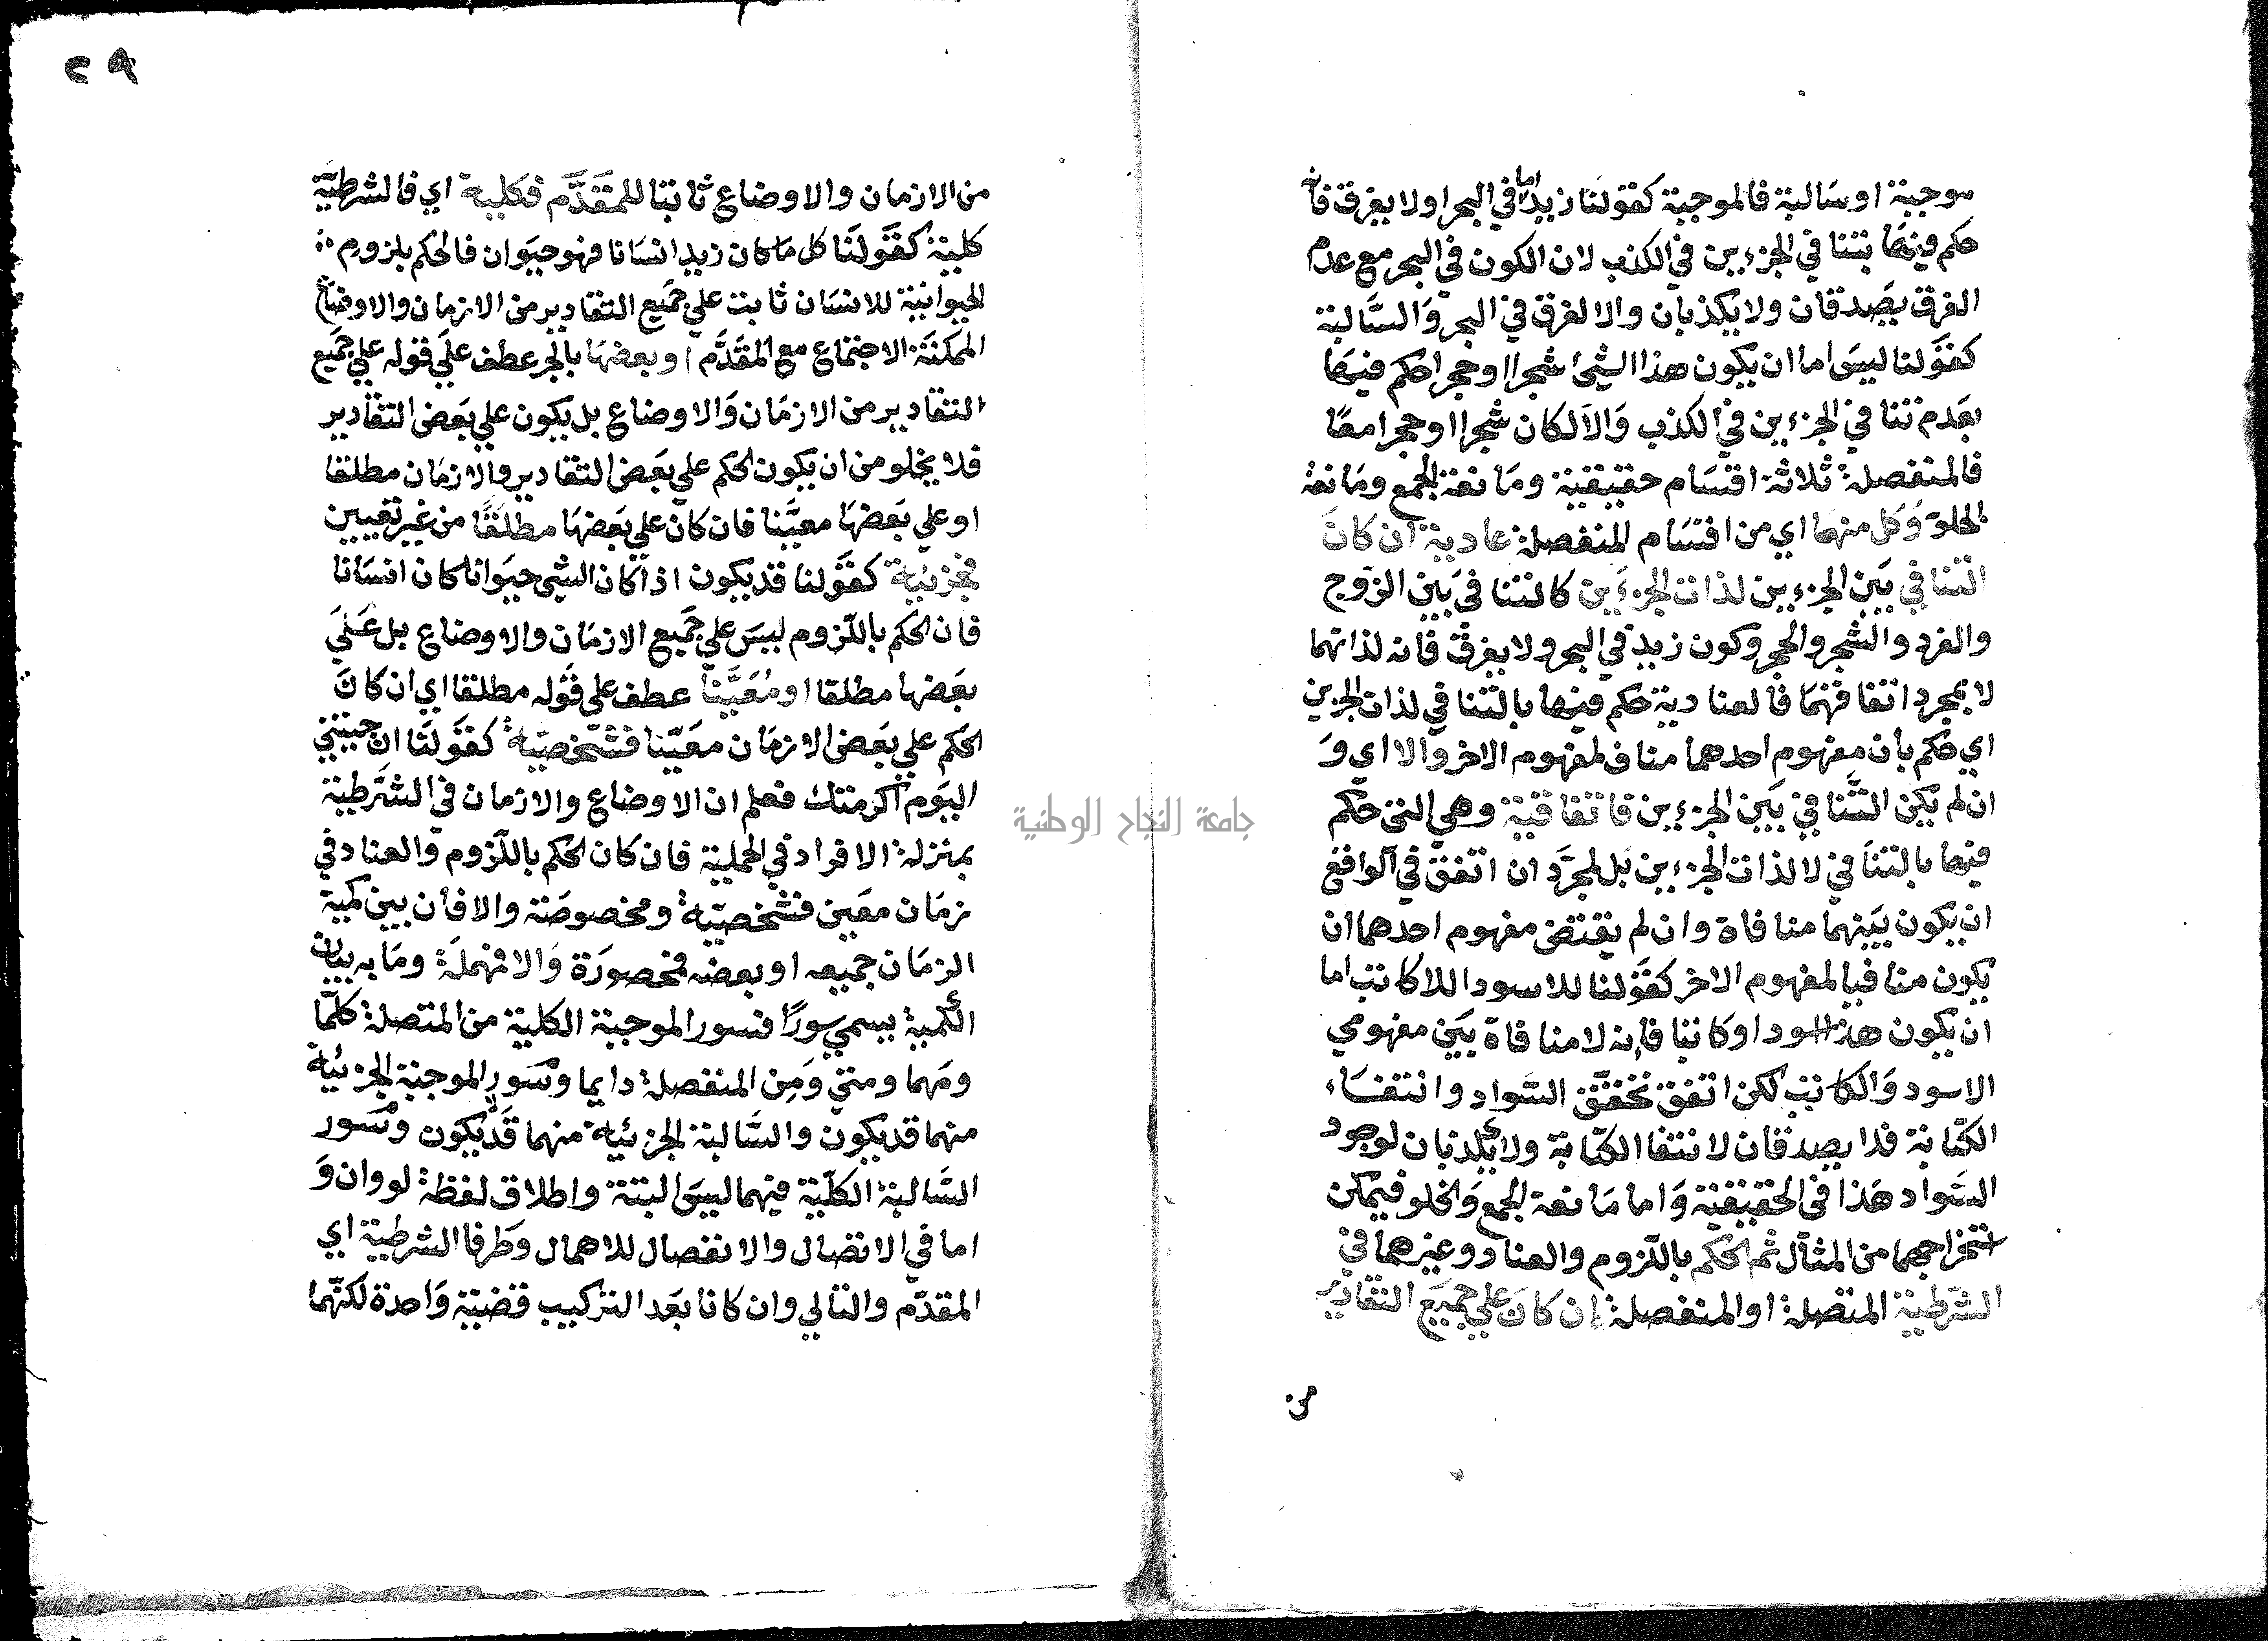 موجبة او سَالبة فالموجبة كقولنا زيد اما في البحر او لا يغرق فانه
حكم فيهَا بتنا في الجزءين في الكذب لان الكون في البحر مع عدم
الغرق يصَدقان ولا يكذبان والا لغرق في البر وَالسَّالبة
كقَولنا ليسَ اما ان يكون هذا الشيئ شجرا او حجرا حكم فيهَا
بعَدم تنا في الجزءين في الكذب وَالاَ لكان شجرا او حجرا معًا
فالمنفصلة ثلاثة اقسَام حقيقية ومَانعة الجمع ومَانعة
الخلوّ وَكل منهَا اي من اقسَام المنفصلة عادية ان كانَ
التنا في بَين الجزءين لذات الجزءَين كالتنا في بَين الزوج
والفرد والشجر والحجر وكون زيد في البحر ولا يغرق فانه لذاتهما
لا بمجرد اتفاقهمَا فالعنادية حكم فيها بالتنا في لذات الجزين
اي حكم بان مفهوم احدهما مناف لمفهوم الاخر والا اي وَ
ان لم يكن التَّنا في بَين الجزءين فاتفاقية وهي التي حكم
فيها بالتنَا في لا لذات الجزءين بَل لمجرَّد ان اتفق في الواقع
ان يكون بيَنهما منافاة وان لم يقتض مفهوم احدهما ان
يكون منافيا لمفهوم الاخر كقوَلنا للاسود اللاكاتب اما
ان يكون هذا اسود او كاتبا فإنه لا منافاة بيَن مفهومي
الاسود وَالكاتب لكن اتفق تحقّق السَواد وانتفَاء
الكتابة فلا يصدقان لانتفا الكتابة ولا يكذبان لوجود
السَواد هَذا في الحقيقية وَاما مَانعة الجمع وَالخلو فيمكن
استخراجهما من المثال ثم الحكم باللزوم والعناد وغيرهما في
الشرّطية المتصلة او المنفصلة ان كانَ علي جميَع التقادير
من
٢٩
من الازمان والاوضاع ثابتا للمقَدَّم فكلية اي فالشرطيّة
كلية كقَولنَا كل مَا كان زيد انسَانا فهو حيَوان فالحكم بلزوم
الحيوانية للانسَان ثابت علي جمَيع التقادير من الازمان والاوضاع
الممكنَة الاجتماع مع المقَدَّم او بعضهَا بالجر عطف علَي قوله علي جمَيع
التقادير من الازمَان وَالاوضاع بل يكون علي بعَض التقادير
فلا يخلو من ان يكون الحكم علي بعَض التقادير والازمَان مطلقا
او علي بعَضهَا معيَّنا فان كان علي بعَضهَا مطلقًا من غير تعَيين
فجزئية كقَولنا قد يكون اذا كان الشي حيَوانا كان انسَانا
فان الحكم باللزوم ليسَ علي جمَيع الازمَان والاوضاع بل عَلَي
بعَضها مطلقا او مُعَيَّنا عطف علي قَوله مطلقا اي ان كانَ
الحكم علي بعَض الازمَان معَيّنا فشَخصيّة كقَولنَا ان جيتني
اليوَم اكرمتك فعلم ان الاوضاع والازمان في الشرَطية
بمنزلة الافراد في الحملية فان كان الحكم باللزوم والعناد في
زمَان معَين فشخصيّة ومخصوصَة والا فان بين كمية
الزمَان جميعه او بعضه فمحصورَة وَالا فمهملَة ومَا به بيان
الكمية يسمي سَورًا فسور الموجبة الكلية من المتصلة كلّما
ومَهما ومتي وَمِن المنفصلة دايما وسَور الموجبة الجزئية
منهما قد يكون والسَّالبة الجزئية منهما قَد لا يكون وسَور
السَّالبة الكلّية فيهما ليسَ البتة واطلاق لفظة لو وان وَ
اما في الاتصَال والانفصال للاهمال وَطرفا الشرطية اي
المقدّم والتالي وان كانا بعَد التركيب قضية وَاحدة لكنّهما
جامعة النجاح الوطنية